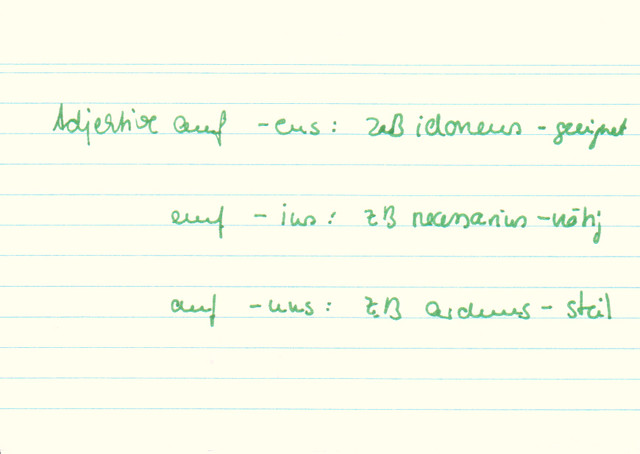 Adjektive auf -eus: z.B idoneus - geeignet
auf - ius: zB necessarius - nötig
auf - uus: z.B arduus - steil